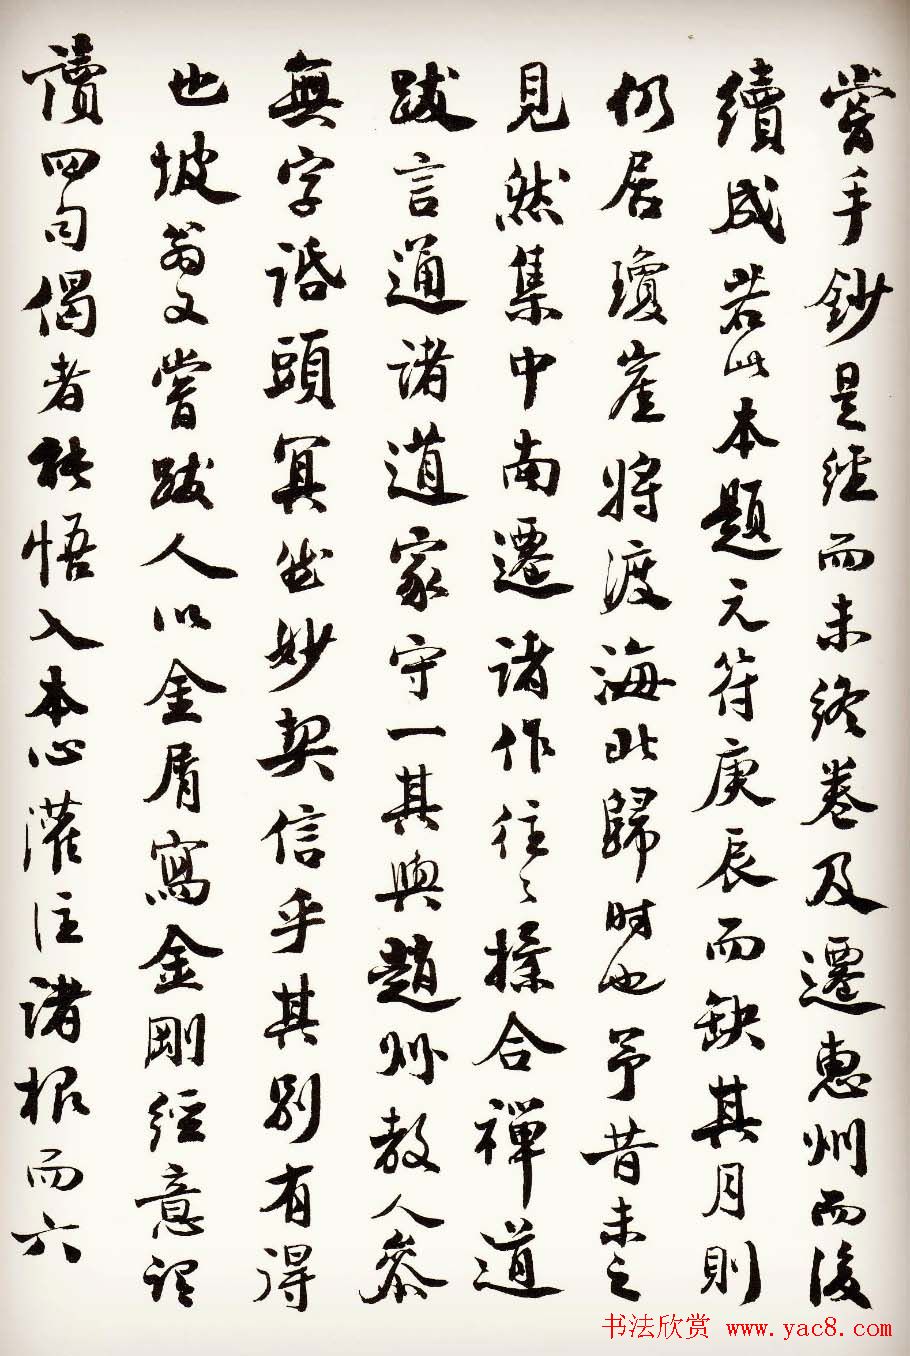 嘗手鈔是經而未終卷及遷惠州而後
續成若此本題元符庚辰而缺其月則
仍居瓊崖將渡海北歸時也予昔未之
見然集中南遷諸作往〻操合禪道
跋言通諸道家守一其與趙州教人參
無字話頭冥然妙契信乎其別有得
也坡翁又嘗跋人以金屑寫金剛經意謂
讀四句偈者能悟入本心灌注諸根而六
书法欣赏 www.yac8.com